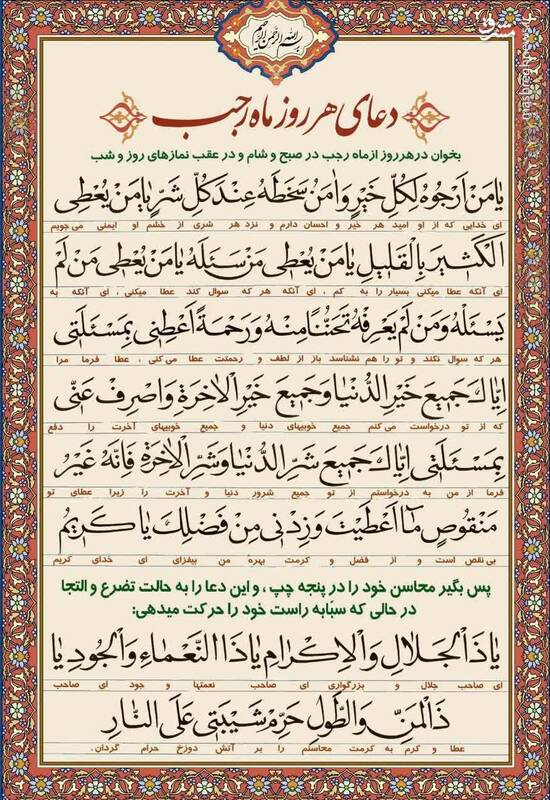 بسم الله الرحمن الرحیم
مشرق
mashreghnews.ir
دعای هر روز ماه رجب
بخوان در هر روز از ماه رجب در صبح و شام و در عقب نمازهای روز و شب
یٰا مَنْ اَرْجُوهُ لِکُلِّ خَیْرٍ وَ اٰمَنُ سَخَطَهُ عِنْدَ کُلِّ شَرٍّ یٰا مَنْ یُعْطِی
ای خدایی که از او امید هر خیر و احسان دارم و نزد هر شری از خشم او ایمنی می جویم
الْکَثیرَ بِالْقَلیلِ یٰا مَنْ یُعْطی مَنْ سَئَلَهُ یٰا مَنْ یُعْطی مَنْ لَمْ
ای آنکه عطا میکنی بسیار را به کم ، ای آنکه هر که سوال کند عطا میکنی ، ای آنکه به
یَسْئَلْهُ وَ مَنْ لَمْ یَعْرِفْهُ تَحَنُّنًا مِنْهُ وَ رَحْمَةً اَعْطِنی بِمَسْئَلَتی
هر که سوال نکند و تو را هم نشناسد باز از لطف و رحمتت عطا می کنی ، عطا فرما مرا
اِیّٰاکَ جَمیعَ خَیْرِ الدُّنْیٰا وَ جَمیعَ خَیْرِ الْاٰخِرَةِ وَاصْرِفْ عَنّی
که از تو درخواست می کنم جمیع خوبیهای دنیا و جمیع خوبیهای آخرت را دفع
بِمَسْئَلَتی اِیّٰاکَ جَمیعَ شَرِّ الدُّنْیٰا وَ شَرِّ الْاٰخِرَةِ فَاِنَّهُ غَیْرُ
فرما از من به درخواستم از تو جمیع شرور دنیا و آخرت را زیرا عطای تو
مَنْقُوصٍ مٰا اَعْطَیْتَ وَ زِدْنی مِنْ فَضْلِکَ یٰا کَریمُ
بی نقص است و از فضل و کرمت بهرهٔ من بیفزای ای خدای کریم
پس بگیر محاسن خود را در پنجه چپ ، و این دعا را به حالت تضرع و التجا
در حالی که سبّابه راست خود را حرکت میدهی:
یٰا ذَا الْجَلٰالِ وَ الْاِکْرٰامِ یٰا ذَا النَّعْمٰاءِ وَ الْجُودِ یٰا
ای صاحب جلال و بزرگواری ای صاحب نعمتها و جود ای صاحب
ذَا الْمَنِّ وَ الطَّوْلِ حَرِّمْ شَیْبَتی عَلَی النّٰارِ
عطا و کرم به کرمت محاسنم را بر آتش دوزخ حرام گردان.